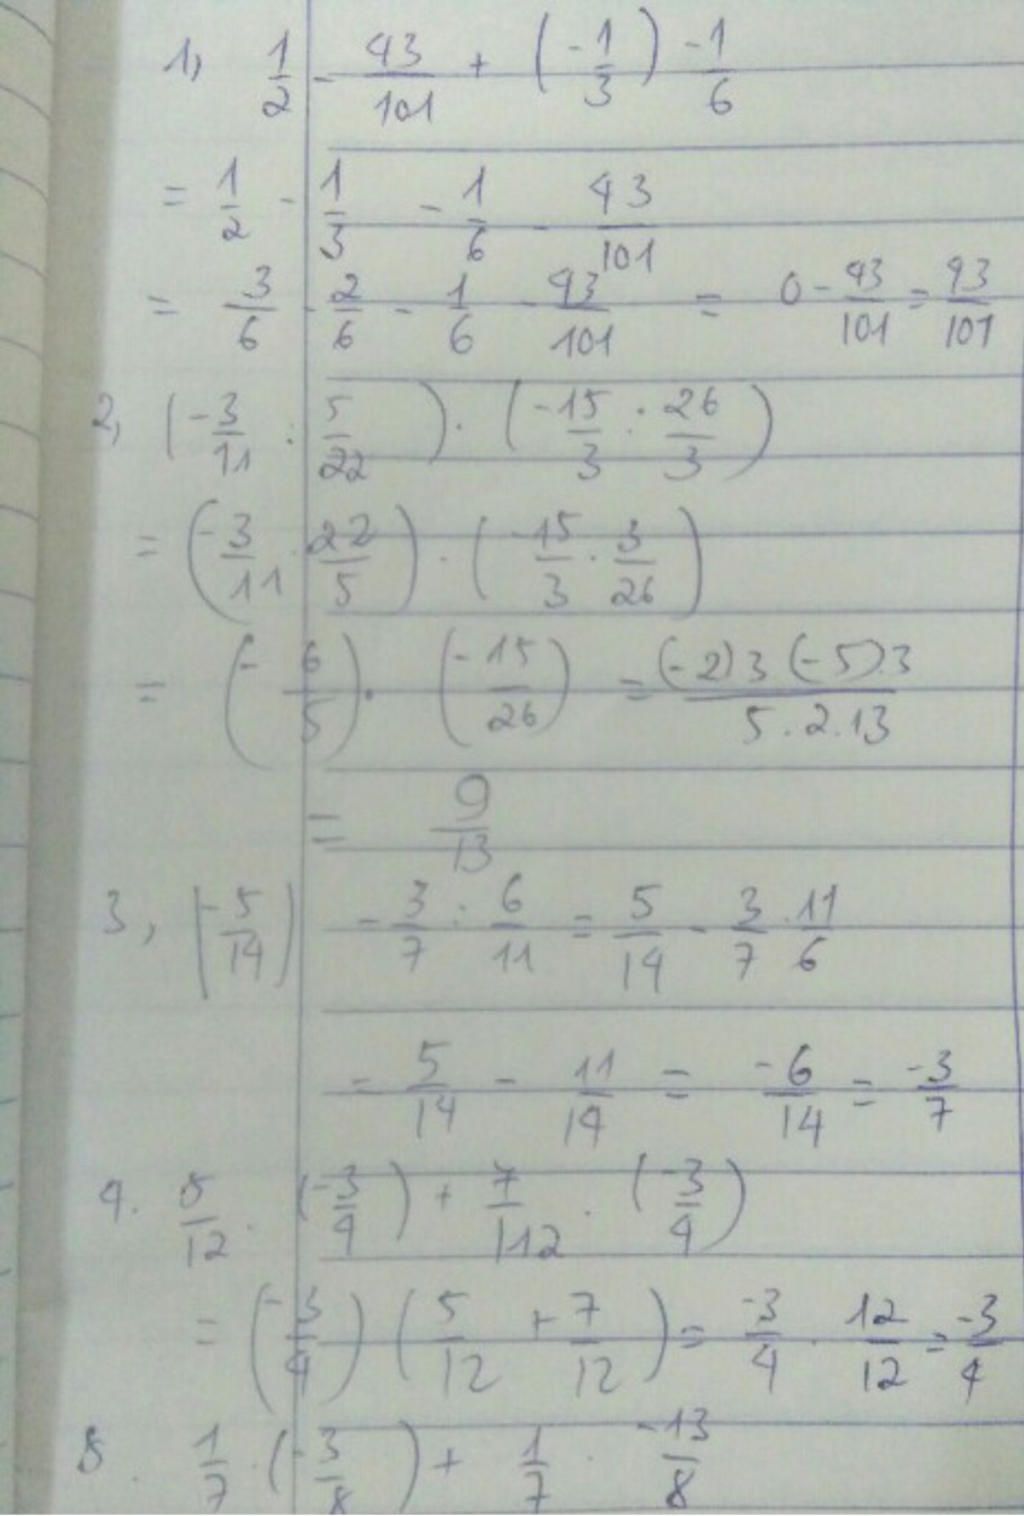 1, 1/2 - 43/101 + (-1/3) -1/6
= 1/2 - 1/3 - 1/6 - 43/101
= 3/6 - 2/6 - 1/6 - 43/101 = 0 - 43/101 = 43/101
2, (-3/11 : 5/22) . (-15/3 : 26/3)
= (-3/11 . 22/5) . (-15/3 . 3/26)
= (-6/5) . (-15/26) = (-2)3(-5).3/5.2.13
= 9/13
3, (-5/14) - 3/7 : 6/11 = 5/14 - 3/7 . 11/6
= 5/14 - 11/14 = -6/14 = -3/7
4. 5/12 . (-3/4) + 7/112 . (-3/4)
= (-3/4) (5/12 + 7/12) = -3/4 . 12/12 = -3/4
5. 1/7 . (-3/8) + 1/7 . -13/8